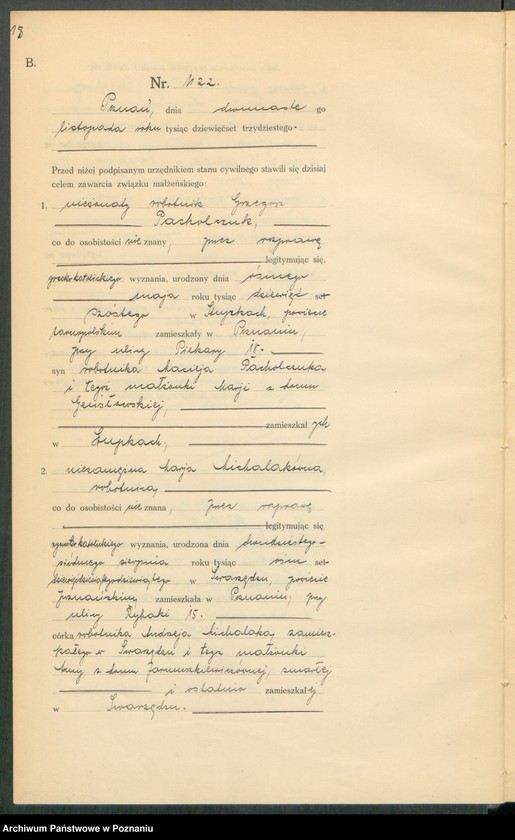 18
B.
Nr. 1122.
Poznań, dnia dwunaste go
listopada roku tysiąc dziewięćset trzydziestego.
Przed niżej podpisanym urzędnikiem stanu cywilnego stawili się dzisiaj
celem zawarcia związku małżeńskiego:
1. nieżonaty robotnik Grzegorz
Pacholczuk,
co do osobistości nie znany, przez rozprawę
legitymując się.
greckokatolickiego wyznania, urodzony dnia ósmego
maja roku tysiąc dziewięć set
szóstego w Stupkach, powiecie
tarnopolskim zamieszkały w Poznaniu,
przy ulicy Piekary 18.
syn robotnika Macieja Pacholczuka
i tegoż małżonki Marji z domu
zamieszkałych
w Stupkach,
2. niezamężna Marja Michalakówna,
robotnica,
co do osobistości nie znana, przez rozprawę
legitymując się
rzymskokatolickiego wyznania, urodzona dnia dwudziestego-
siódmego sierpnia roku tysiąc ośm set
dziewięćdziesiątegodziewiątego w Swarzędzu, powiecie
poznańskim, zamieszkała w Poznaniu, przy
ulicy Rybaki 15.
córka robotnika Andrzeja Michalaka, zamiesz-
kałego w Swarzędzu i tegoż małżonki
Anny z domu zmarłej
i ostatnio zamieszkałej
w Swarzędzu.
Archiwum Państwowe w Poznaniu